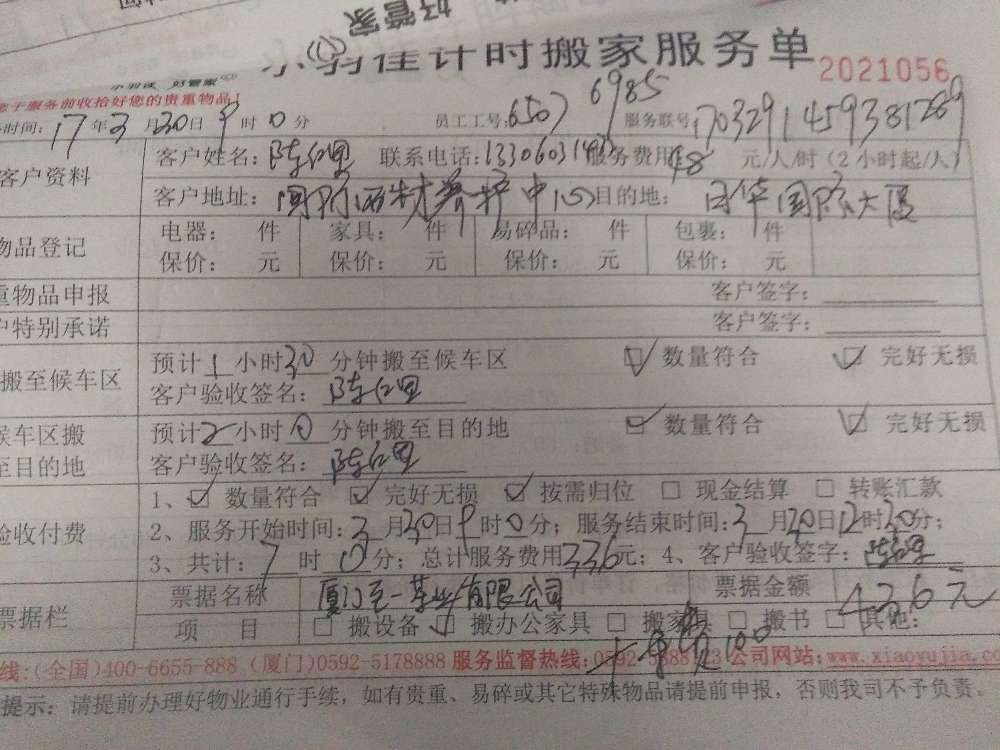 好管家
小羽佳计时搬家服务单
2021056
小羽佳 好管家
于服务前收拾好您的贵重物品!
时间: 17年3月30日9时0分 员工工号: 6507 6985 服务联号 1703291459381289
客户资料 客户姓名: 陈红里 联系电话: 服务费用 48 元/人/时 (2小时起/人)
客户地址: 国际石材养护中心 目的地: 日华国际大厦
物品登记 电器: 件 家具: 件 易碎品: 件 包裹: 件
保价: 元 保价: 元 保价: 元 保价: 元
重物品申报 客户签字:
户特别承诺 客户签字:
搬至候车区 预计1小时30分钟搬至候车区 ☑数量符合 ☑完好无损
客户验收签名:
候车区搬 预计2小时0分钟搬至目的地 ☑数量符合 ☑完好无损
至目的地 客户验收签名:
验收付费 1、☑数量符合 ☑完好无损 ☑按需归位 □现金结算 □转账汇款
2、服务开始时间: 3月30日9时0分; 服务结束时间: 3月30日12时30分;
3、共计: 7时0分; 总计服务费用336元; 4、客户验收签字:
票据栏 票据名称 厦门至一茶业有限公司 票据金额 436元
项 目 □搬设备 ☑搬办公家具 □搬家具 □搬书 □其他:
+车费100
线:(全国)400-6655-888 (厦门)0592-5178888 服务监督热线:0592-5 公司网站:www.xiaoyujia.co
提示: 请提前办理好物业通行手续, 如有贵重、易碎或其它特殊物品请提前申报, 否则我司不予负责。